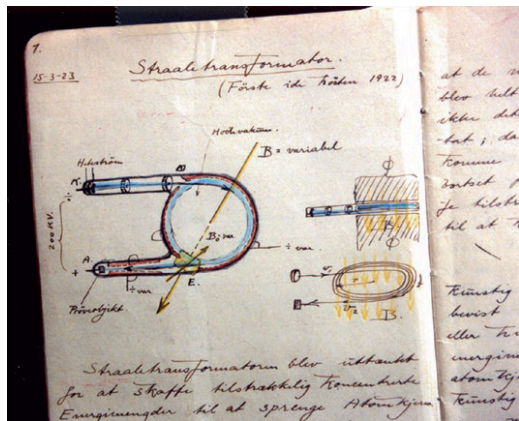 1.
15-3-23
Straaletransformator.
(Förste ide hösten 1922)
Hochvakuum.
B = variabel
Hilström
K.
200 KV.
÷
B₀ var.
÷ var.
A.
+
E.
÷ var
Pröveobjekt
Φ
v₁
r
v₂
B.
Straaletransformatoren blev uttænkt
for at skaffe tilstrækkelig koncentrerte
Energimengder til at sprenge Atomkjern
at de
blev helt
ikke
tat; da
komme
bortset
til at
Kunstig
bevist
eller
energim
atomkj
Kunstig